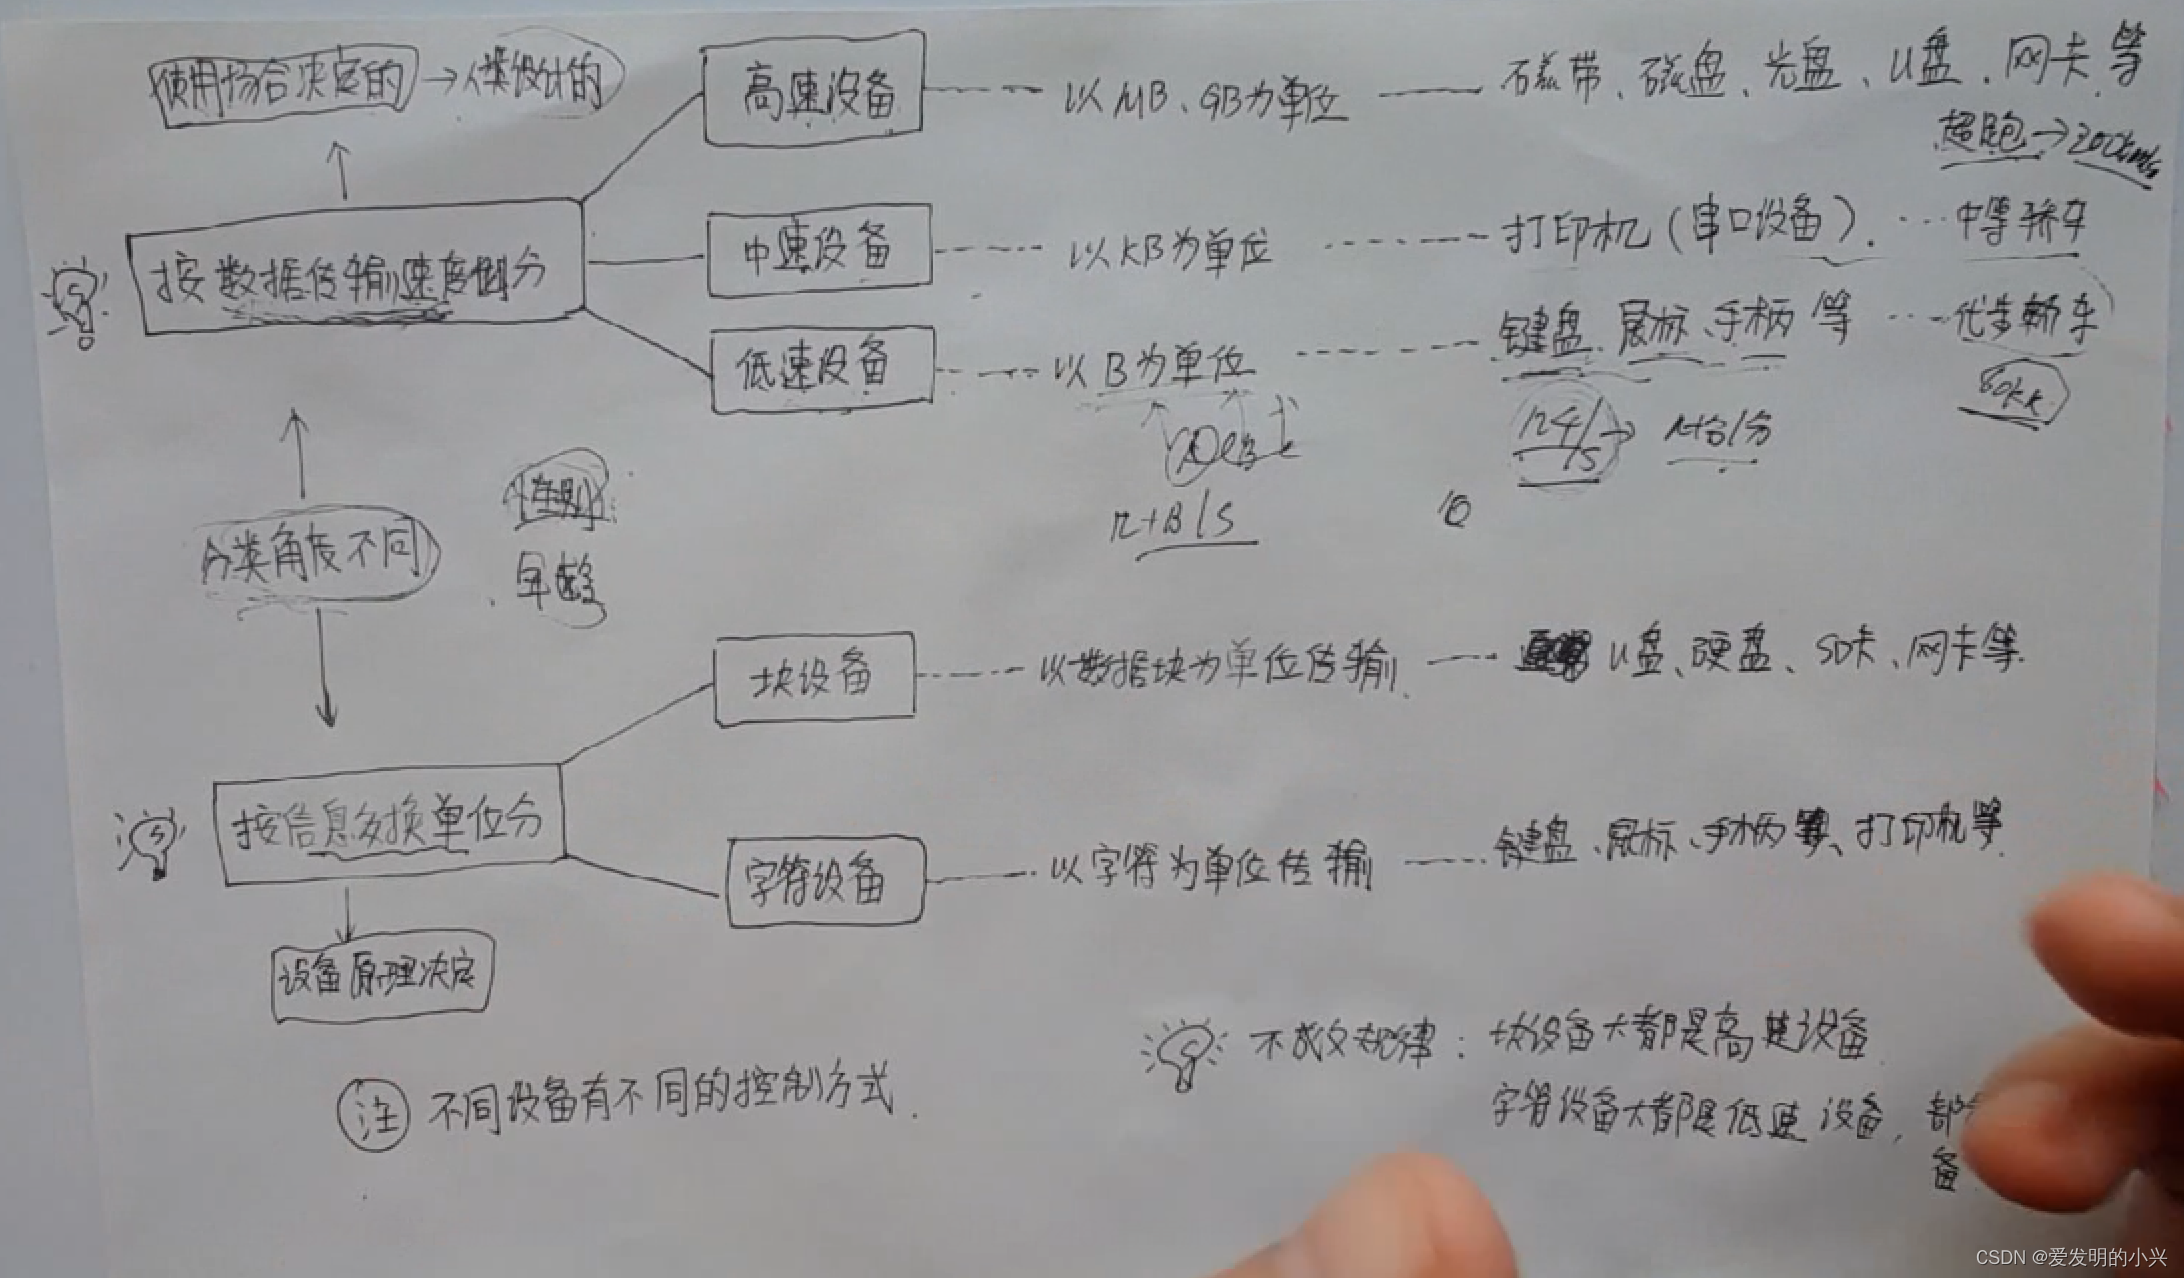 使用场合决定的 → 人类设计的
高速设备 以MB、GB为单位 磁带、磁盘、光盘、U盘、网卡等
超跑 →
按数据传输速度划分
中速设备 以KB为单位 打印机(串口设备). 中等轿车
低速设备 以B为单位 键盘、鼠标、手柄等 代步轿车
分类角度不同
性别
年龄
块设备 以数据块为单位传输. U盘、硬盘、SD卡、网卡等.
按信息交换单位分
字符设备 以字符为单位传输 键盘、鼠标、手柄等、打印机等.
设备原理决定
注 不同设备有不同的控制方式.
不成文规律: 块设备大都是高速设备.
字符设备大都是低速设备, 部
备
CSDN @爱发明的小兴